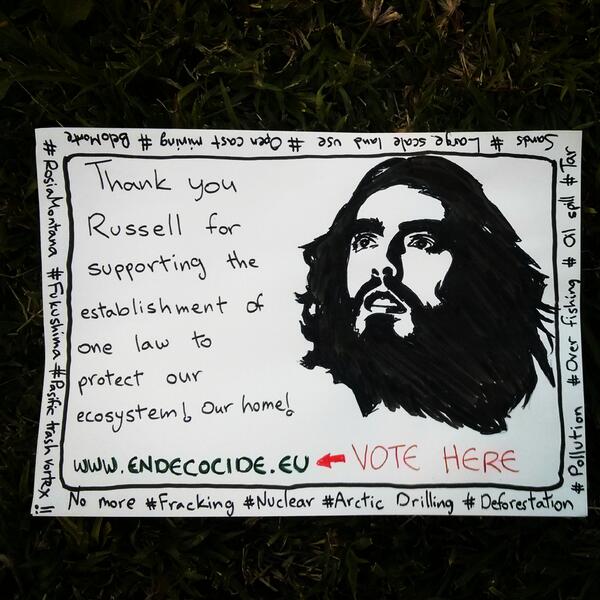 Thank you
Russell for
supporting the
establishment of
one law to
protect our
ecosystem! Our home!
WWW.ENDECOCIDE.EU ← VOTE HERE
No more #Fracking #Nuclear #Arctic Drilling #Deforestation
#Pollution #Over fishing #Oil spill #Tar
Sands #Large scale land use #Open cast mining #BeloMonte
#RosiaMontana #Fukushima #Pasific trash vortex!!